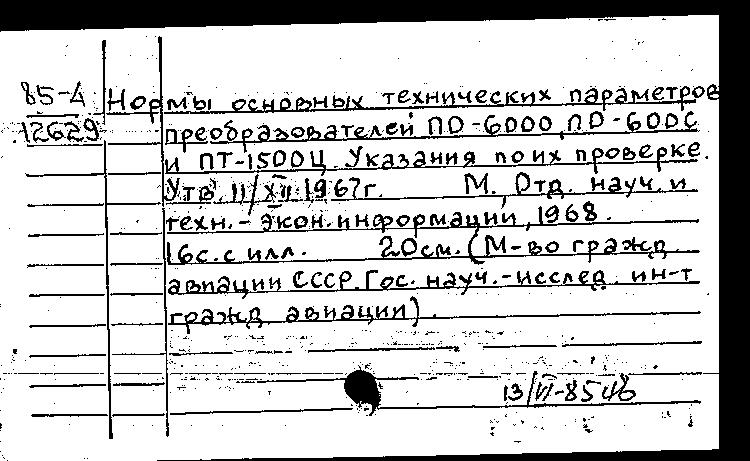 85-4 Нормы основных технических параметров
12629 преобразователей ПО-6000, ПО-600С
и ПТ-1500Ц. Указания по их проверке.
Утв. 11/XII 1967г. М., Отд. науч. и
техн.-экон. информации, 1968.
16с. с илл. 20см. (М-во гражд.
авиации СССР. Гос. науч.-исслед. ин-т
гражд. авиации).
13/VI-85